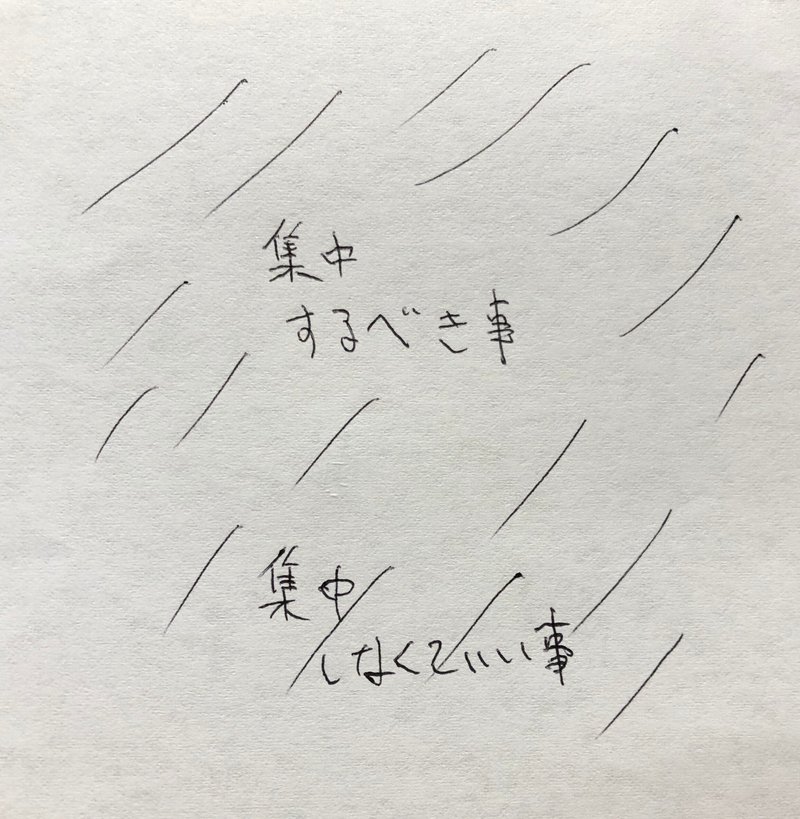 集中
するべき事
集中
しなくていい事